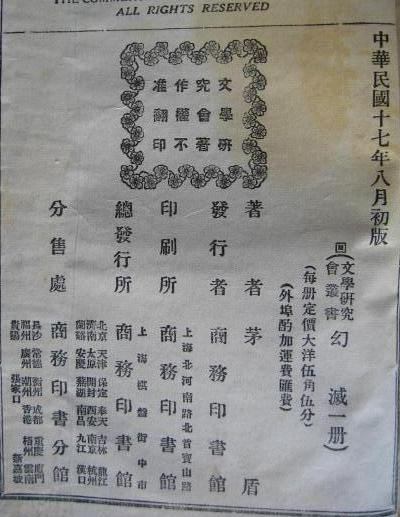 ALL RIGHTS RESERVED
中華民國十七年八月初版
文學研究會叢書 幻滅一册
(每册定價大洋伍角伍分)
(外埠酌加運費匯費)
文學研
究會著
作權不
准翻印
著者 茅盾
發行者 商務印書館
上海北河南路北首寶山路
印刷所 商務印書館
上海棋盤街中市
總發行所 商務印書館
北京 天津 保定 奉天 吉林 龍江
濟南 太原 開封 西安 南京 杭州
安慶 蕪湖 南昌 九江 漢口
分售處 商務印書分館
長沙 常德 衡州 成都 重慶 廈門
福州 廣州 潮州 香港 梧州 雲南
貴陽 張家口 新嘉坡